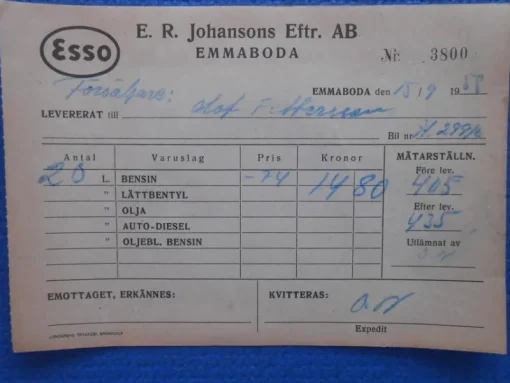 Esso
E. R. Johansons Eftr. AB
EMMABODA
Nr 3800
Försäljare:
EMMABODA den 15/9 1958
LEVERERAT till Olof
Bil nr
Antal Varuslag Pris Kronor MÄTARSTÄLLN.
20 L. BENSIN -74 14 80 Före lev.
405
" LÄTTBENTYL
" OLJA Efter lev.
435
" AUTO-DIESEL
" OLJEBL. BENSIN Utlämnat av
EMOTTAGET, ERKÄNNES: KVITTERAS:
Expedit